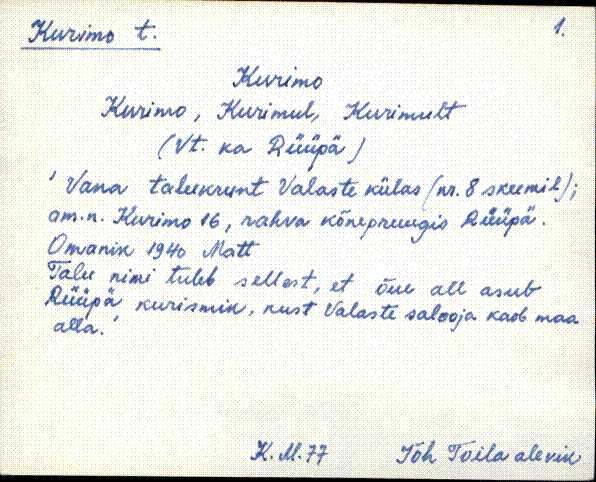 Kurimo t.
1.
Kurimo
Kurimo, Kurimul, Kurimult
(Vt. ka Rüüpä)
' Vana talukrunt Valaste külas (nr. 8 skeemil);
am.n. Kurimo 16, rahva kõnepruugis Rüüpä.
Omanik 1940 Matt
Talu nimi tuleb sellest, et õue all asub
Rüüpä kurismik, kust Valaste salaoja kaob maa
alla.'
K.M.77 Jõh Toila alevik